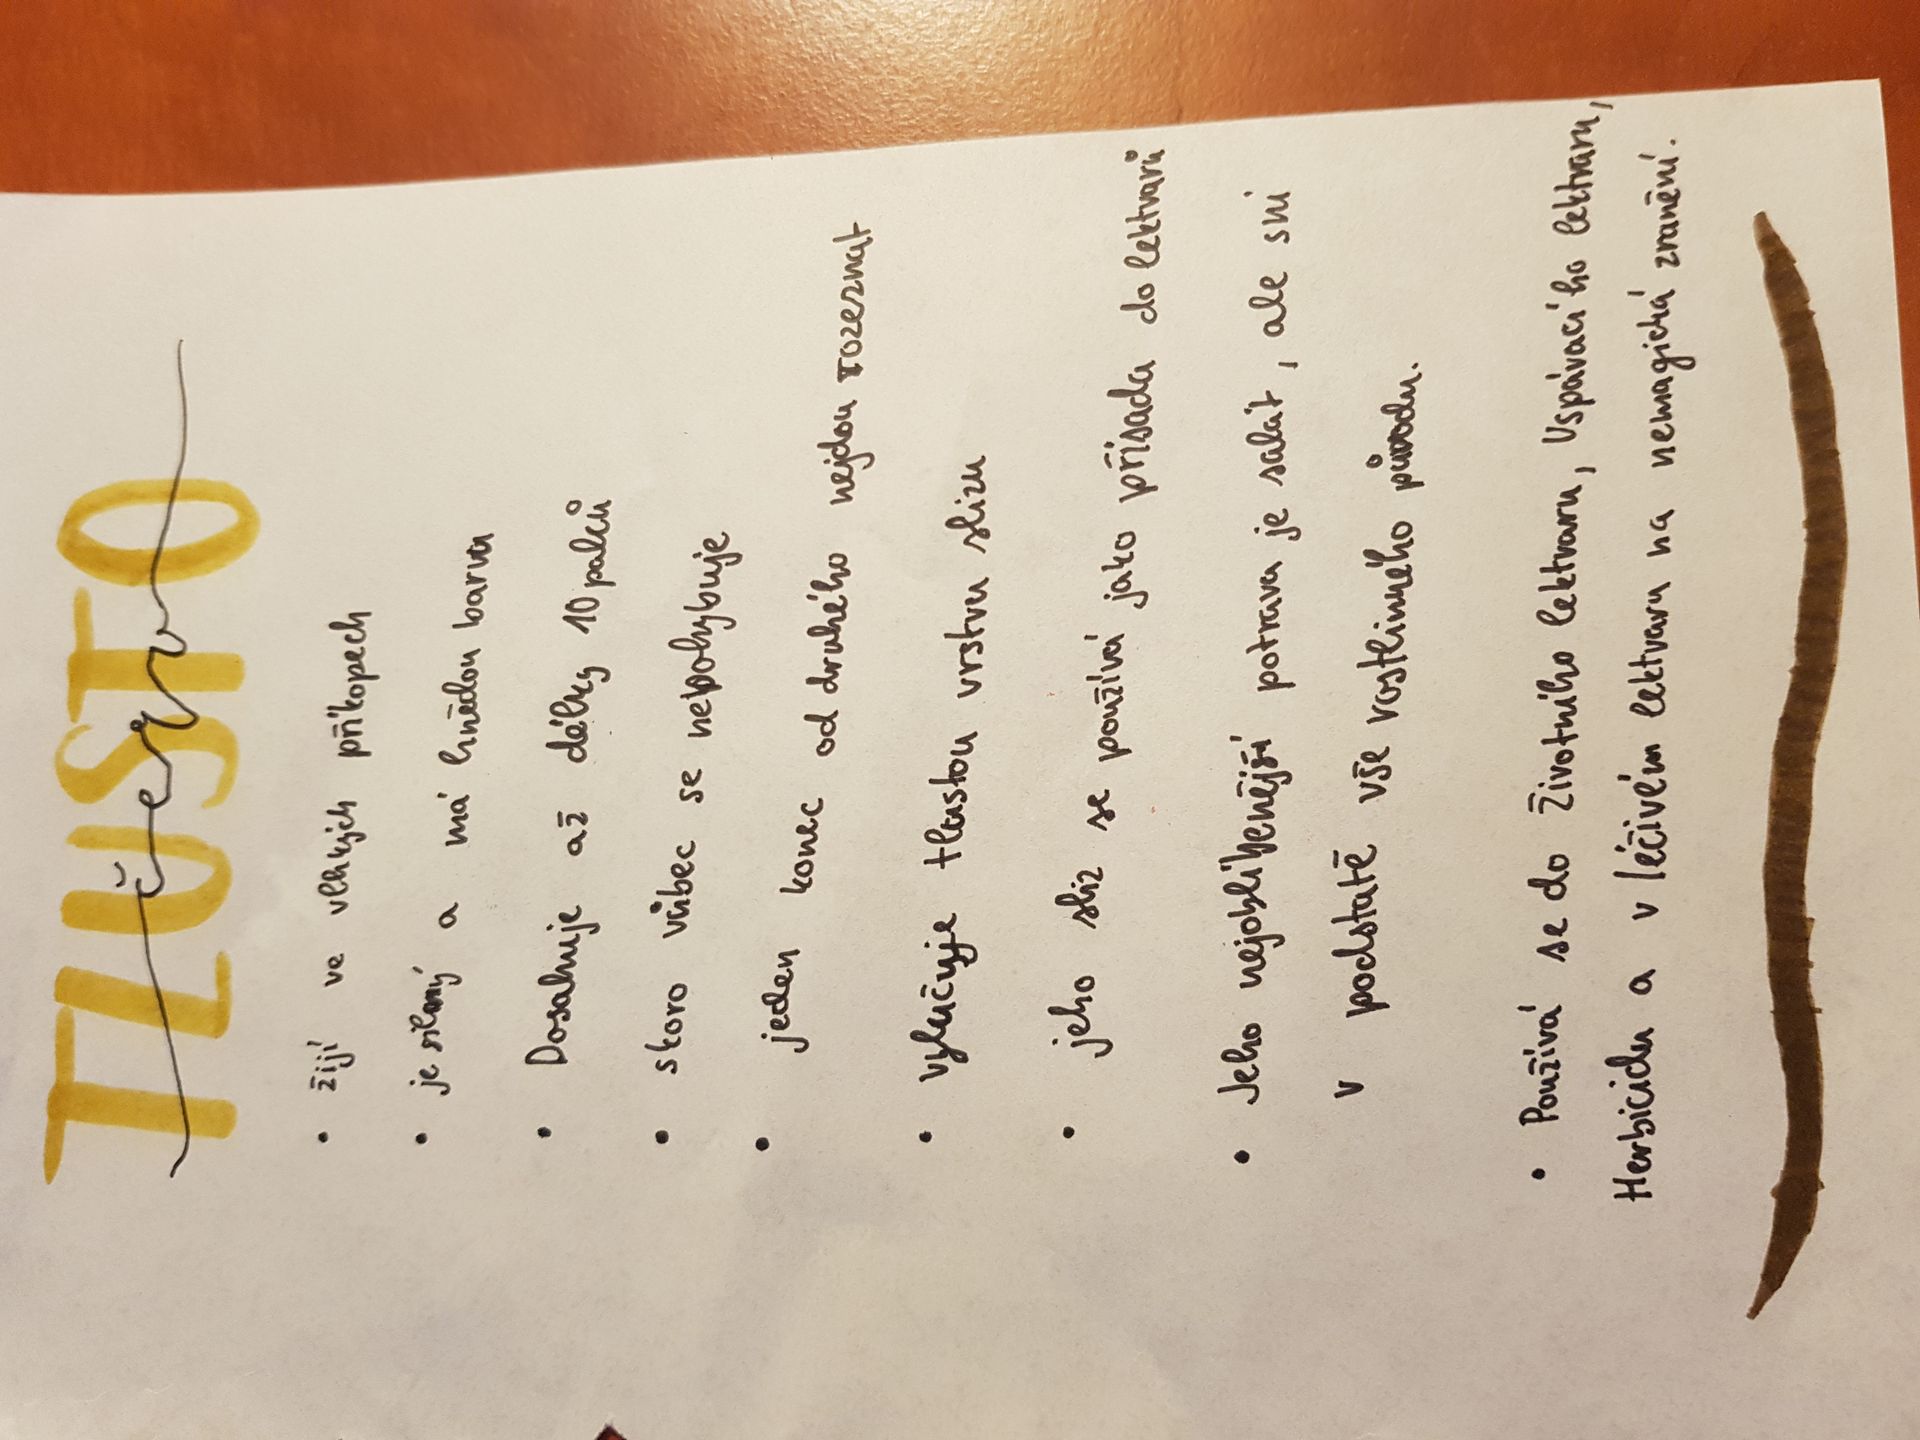 TLUSTO
červ
• žijí ve vlhkých příkopech
• je silený a má hnědou barvu
• Dosahuje až délky 10 palců
• skoro vůbec se nepohybuje
• jeden konec od druhého nejdou rozeznat
• vylučuje tlustou vrstvu slizu
• jeho sliz se používá jako přísada do lektvarů
• Jeho nejoblíbenější potrava je salát, ale sní
v podstatě vše rostlinného původu.
• Používá se do Životního lektvaru, Uspávacího lektvaru,
Herbicidu a v léčivém lektvaru na nemagická zranění.